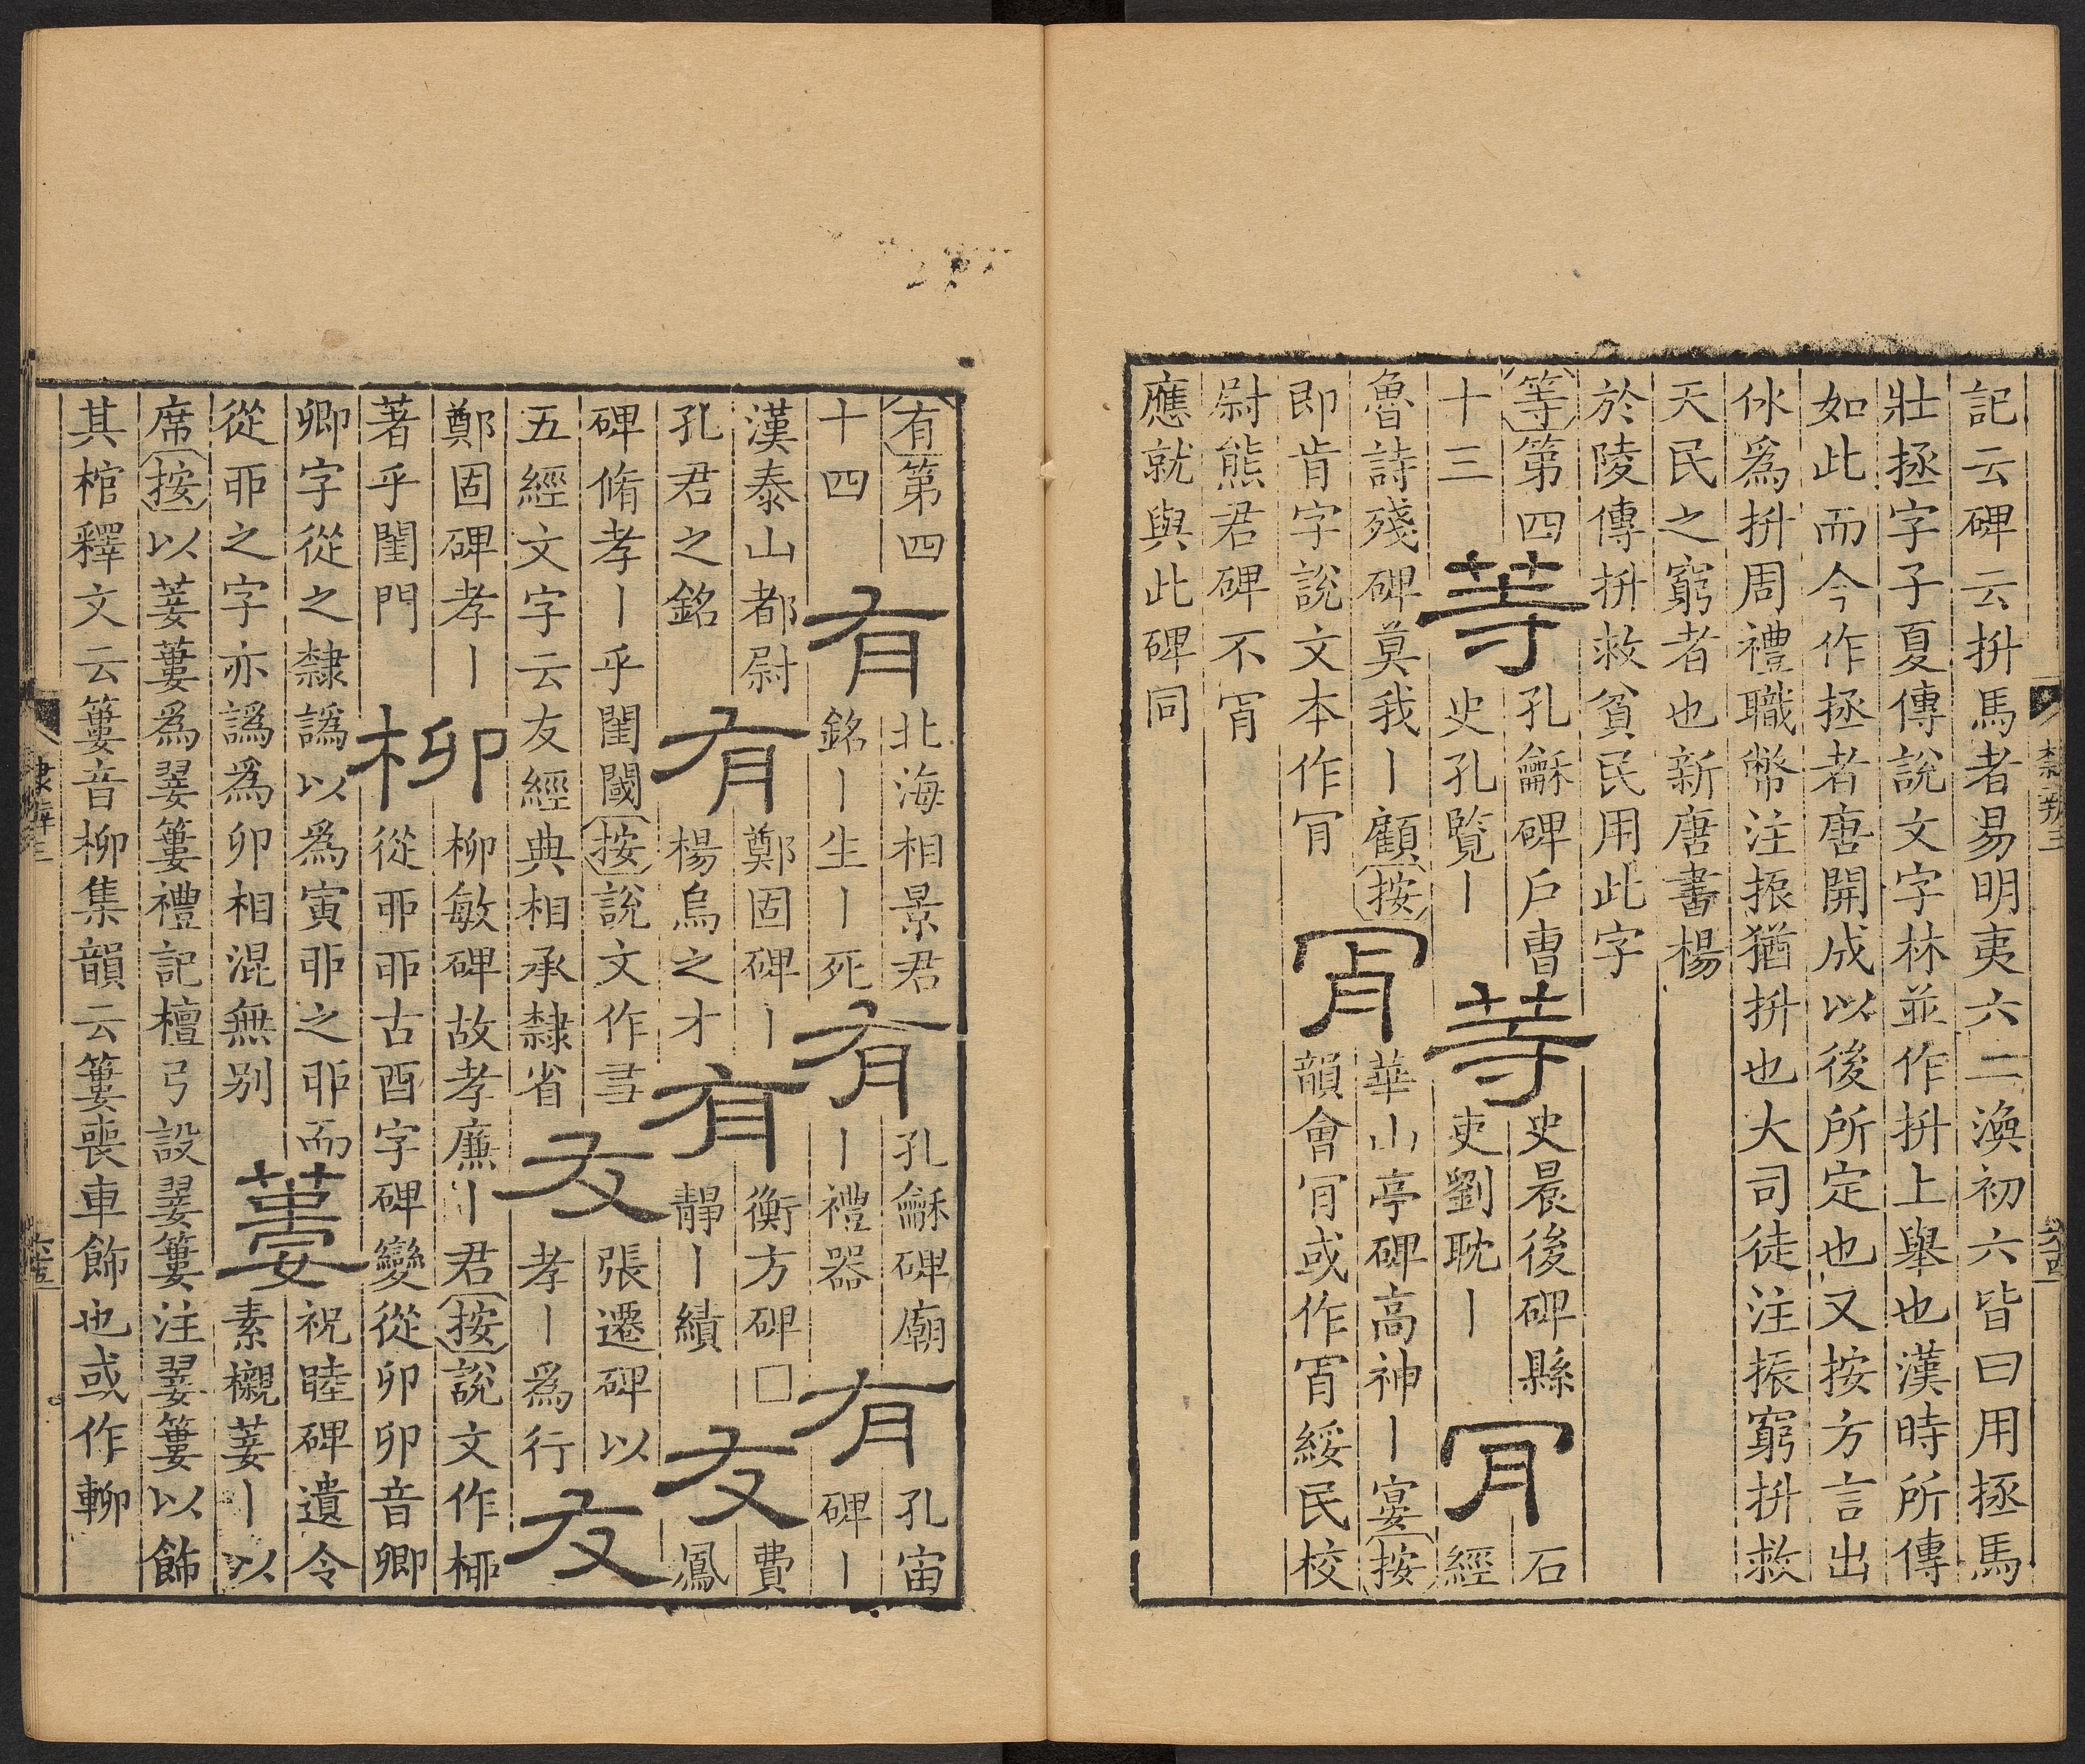 記云碑云抍馬者易明夷六二渙初六皆曰用拯馬
壯拯字子夏傳說文字林並作抍上舉也漢時所傳
如此而今作拯者唐開成以後所定也又按方言出
㐲爲抍周禮職幣注振猶抍也大司徒注振窮抍救
天民之窮者也新唐書楊
於陵傳抍救貧民用此字
等第四
十三
等
孔龢碑戶曹
史孔覽丨
等
史晨後碑縣
吏劉耽丨
肎
石
經
魯詩殘碑莫我丨顧按
即肯字說文本作肎
肯
華山亭碑高神丨宴按
韻會肎或作肯綏民校
尉熊君碑不肯
應就與此碑同
隸辨三
有第四
十四
有
北海相景君
銘丨生丨死
有
孔龢碑廟
丨禮器
有
孔宙
碑丨
漢泰山都尉
孔君之銘
有
鄭固碑丨
楊烏之才
有
衡方碑□
靜丨績
友
費
鳳
碑脩孝丨乎閨閾按說文作㕛
五經文字云友經典相承隸省
友
張遷碑以
孝丨爲行
友
鄭固碑孝丨
著乎閨門
柳
柳敏碑故孝廉丨君按說文作桺
從丣丣古酉字碑變從卯卯音卿
卿字從之隸譌以爲寅丣之丣而
從丣之字亦譌爲卯相混無別
蔞
祝睦碑遺令
素櫬萋丨以
席按以萋蔞爲翣簍禮記檀弓設翣簍注翣簍以飾
其棺釋文云簍音柳集韻云簍喪車飾也或作
隸辨三